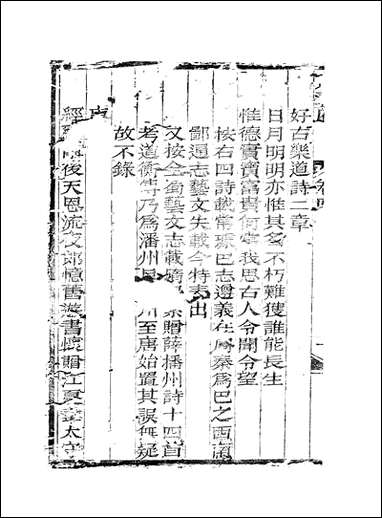 好古樂道詩二章
日月明明亦惟其名不朽難獲誰能長生
惟德實寶富貴何常我思古人令聞令望
按右四詩載常璩巴志遵義在周秦爲巴之西南
鄙通志藝文失載今特表出
又按全蜀藝文志載 贈薛播州詩十四首
考道衡 乃爲潘州 州至唐始置其誤無疑
故不錄
唐
經 後天恩流夜郎憶舊遊書懷贈江夏韋太守